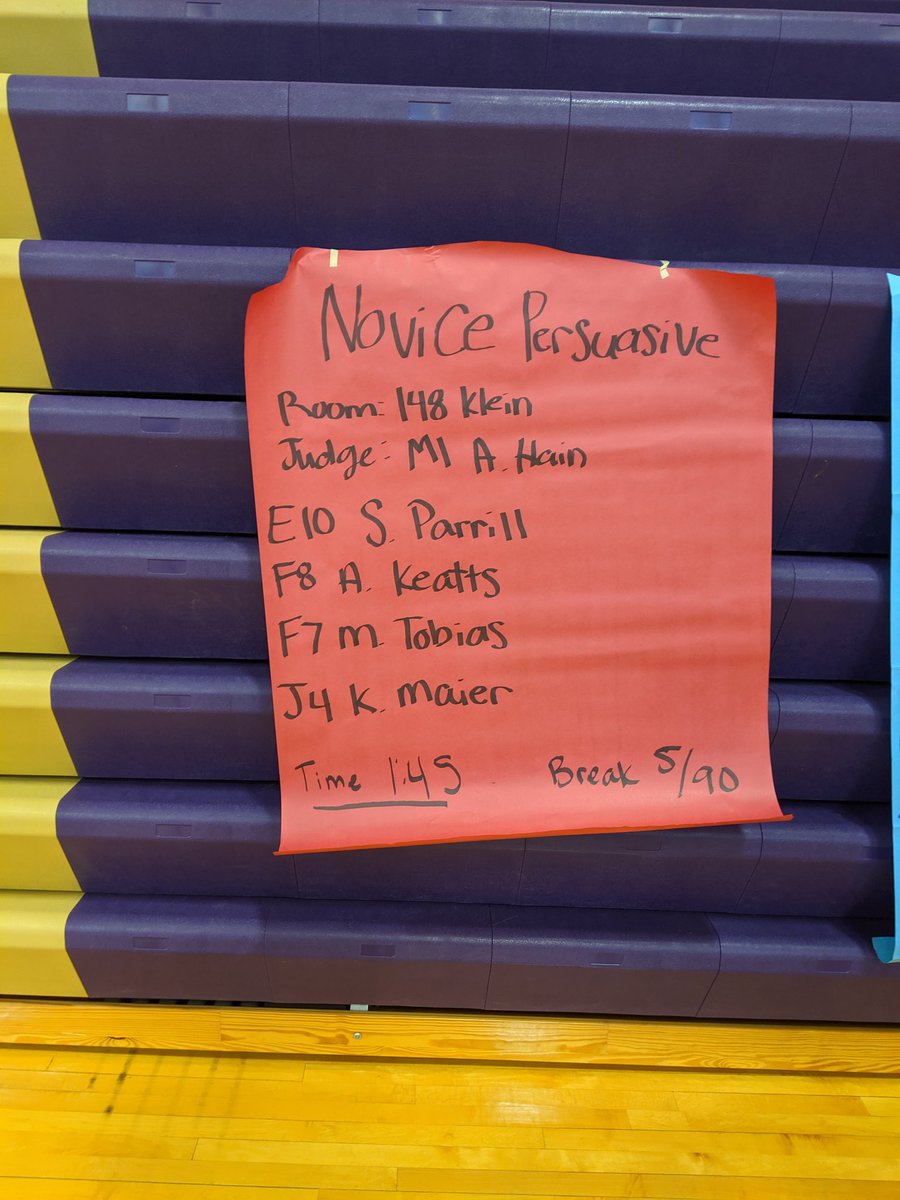 Novice Persuasive
Room: 148 Klein
Judge: M1 A. Hain
E10 S. Parrill
F8 A. Keatts
F7 M. Tobias
J4 K. Maier
Time 1:45 Break 5/90